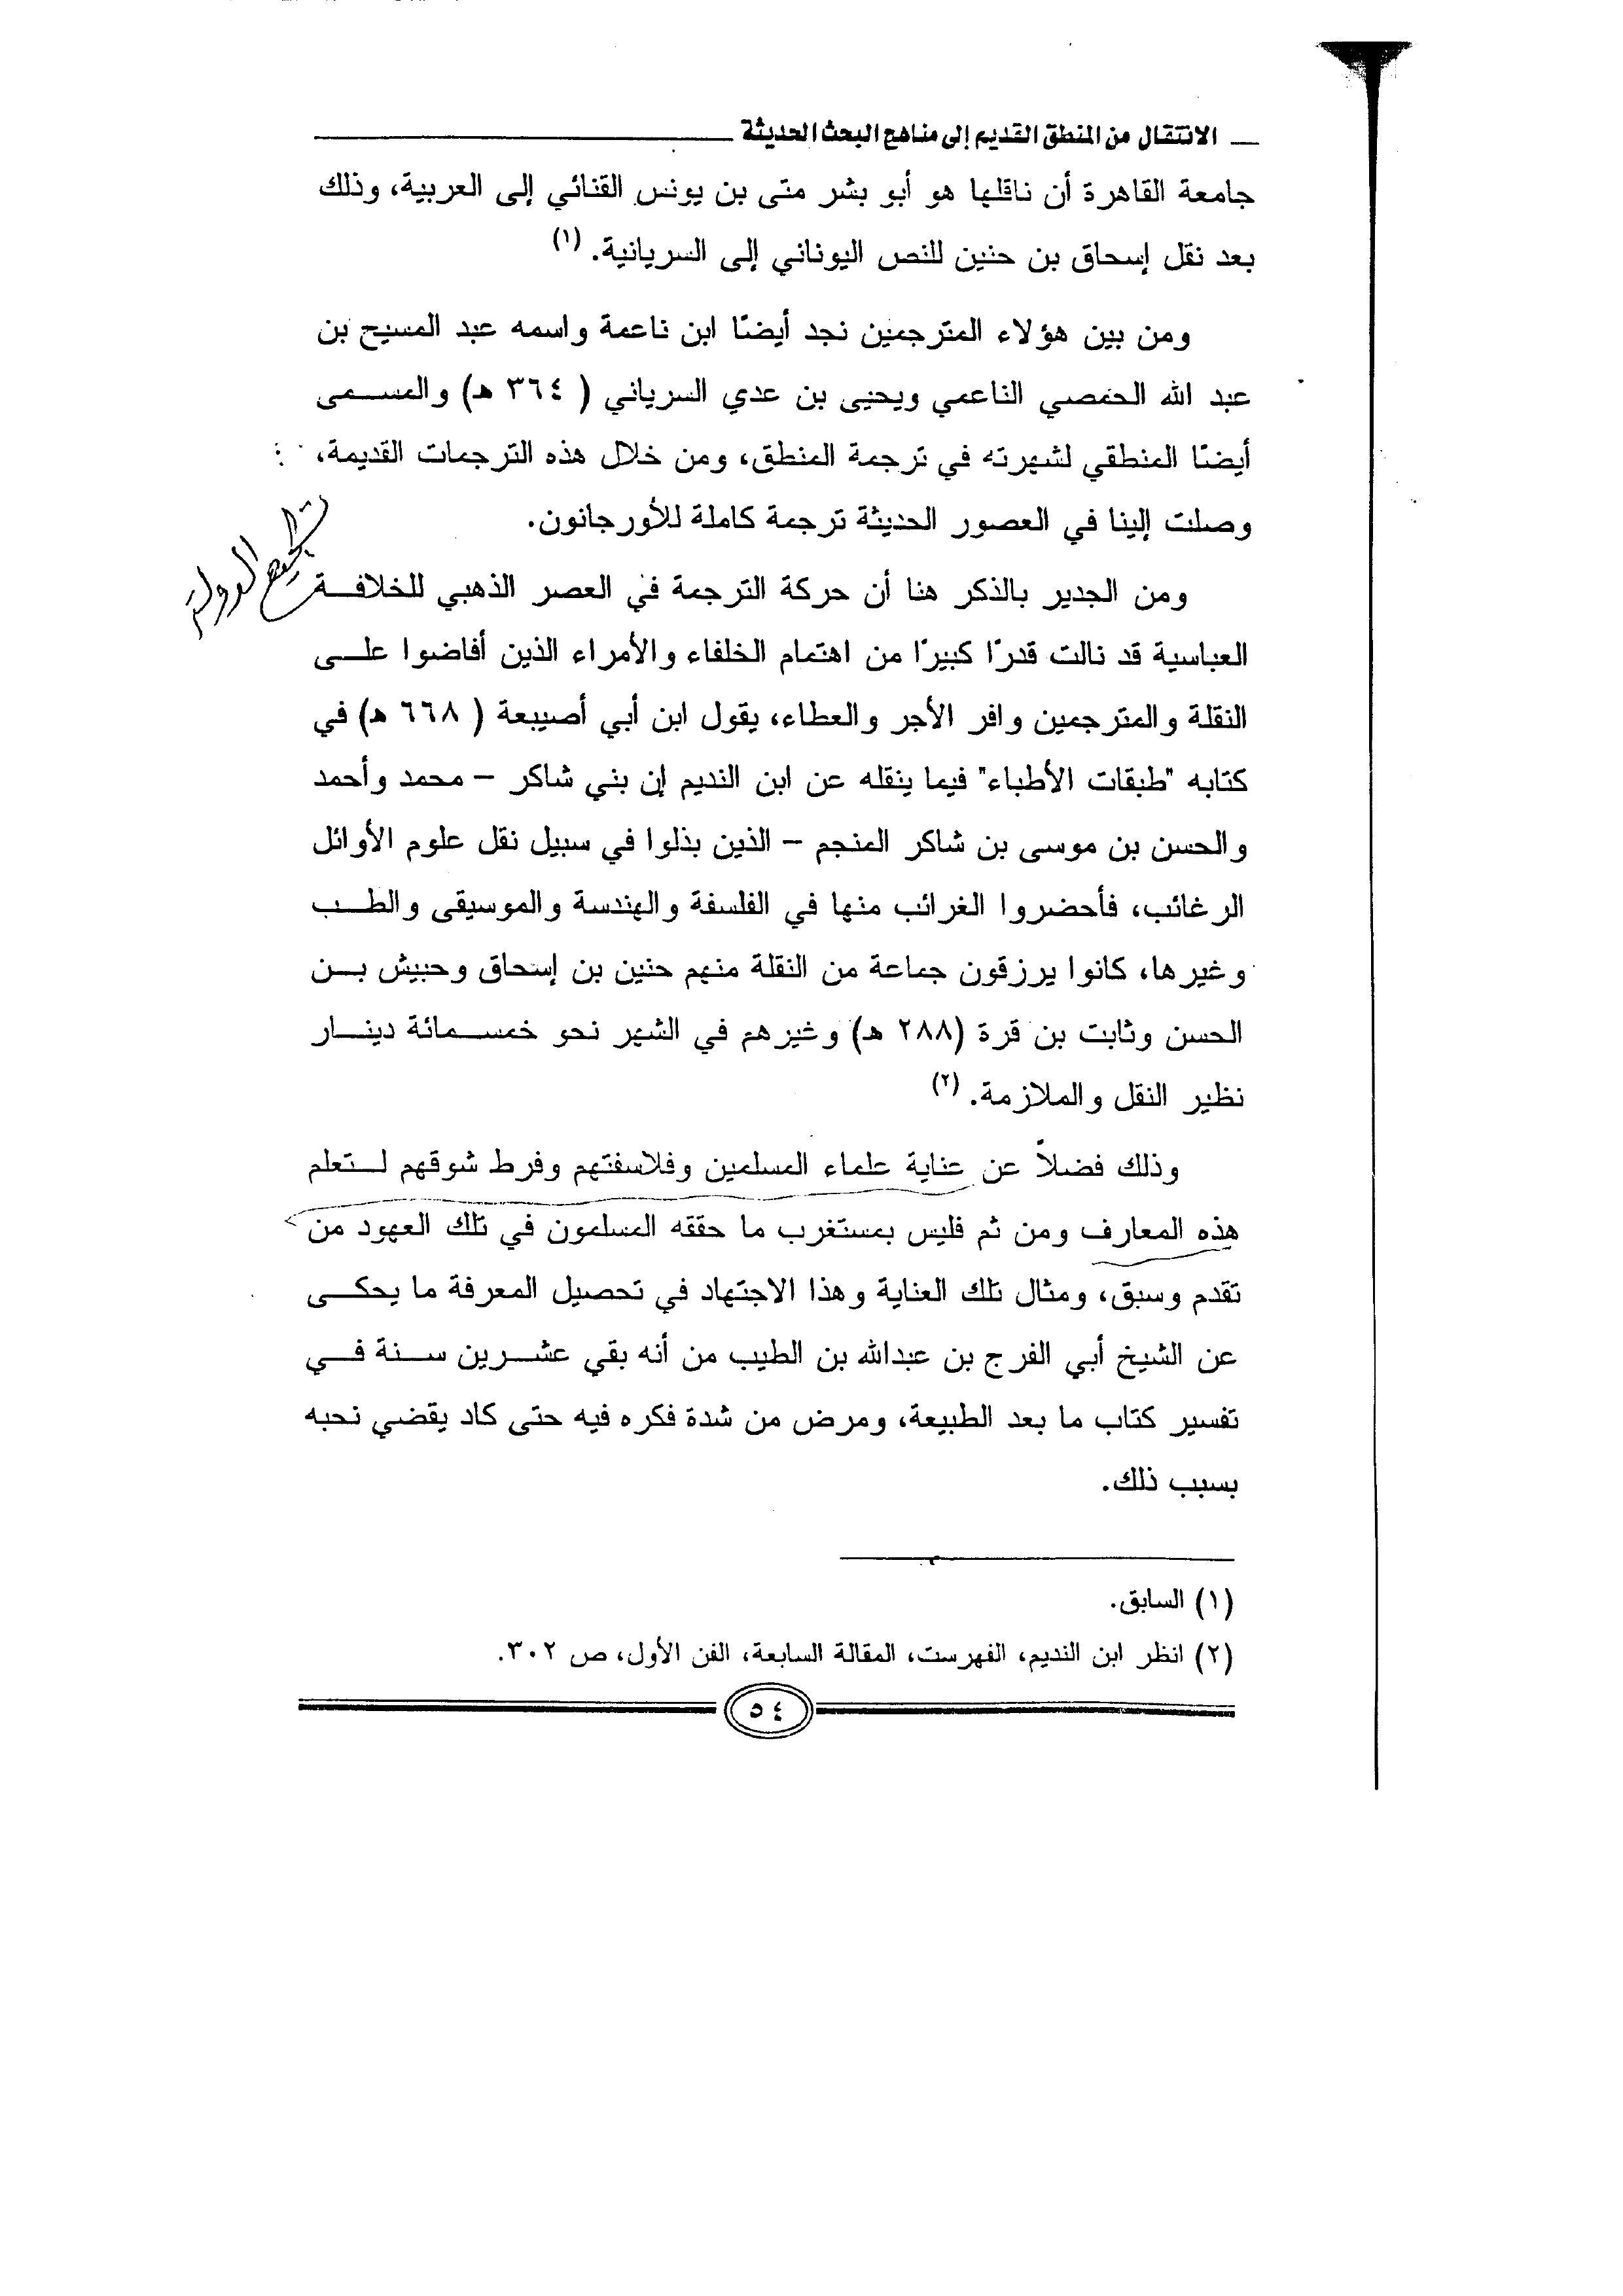 الانتقال من المنطق القديم إلى مناهج البحث الحديثة
جامعة القاهرة أن ناقلها هو أبو بشر متى بن يونس القنائي إلى العربية، وذلك
بعد نقل إسحاق بن حنين للنص اليوناني إلى السريانية. (١)
ومن بين هؤلاء المترجمين نجد أيضًا ابن ناعمة واسمه عبد المسيح بن
عبد الله الحمصي الناعمي ويحيى بن عدي السرياني ( ٣٦٤ هـ) والمسمى
أيضًا المنطقي لشهرته في ترجمة المنطق، ومن خلال هذه الترجمات القديمة،
وصلت إلينا في العصور الحديثة ترجمة كاملة للأورجانون.
تشجيع الدولة
ومن الجدير بالذكر هنا أن حركة الترجمة في العصر الذهبي للخلافة
العباسية قد نالت قدرًا كبيرًا من اهتمام الخلفاء والأمراء الذين أفاضوا على
النقلة والمترجمين وافر الأجر والعطاء، يقول ابن أبي أصيبعة ( ٦٦٨ هـ) في
كتابه "طبقات الأطباء" فيما ينقله عن ابن النديم إن بني شاكر – محمد وأحمد
والحسن بن موسى بن شاكر المنجم – الذين بذلوا في سبيل نقل علوم الأوائل
الرغائب، فأحضروا الغرائب منها في الفلسفة والهندسة والموسيقى والطب
وغيرها، كانوا يرزقون جماعة من النقلة منهم حنين بن إسحاق وحبيش بن
الحسن وثابت بن قرة (٢٨٨ هـ) وغيرهم في الشهر نحو خمسمائة دينار
نظير النقل والملازمة. (٢)
وذلك فضلاً عن عناية علماء المسلمين وفلاسفتهم وفرط شوقهم لتعلم
هذه المعارف ومن ثم فليس بمستغرب ما حققه المسلمون في تلك العهود من
تقدم وسبق، ومثال تلك العناية وهذا الاجتهاد في تحصيل المعرفة ما يحكى
عن الشيخ أبي الفرج بن عبدالله بن الطيب من أنه بقي عشرين سنة في
تفسير كتاب ما بعد الطبيعة، ومرض من شدة فكره فيه حتى كاد يقضي نحبه
بسبب ذلك.
(١) السابق.
(٢) انظر ابن النديم، الفهرست، المقالة السابعة، الفن الأول، ص ٣٠٢.
٥٤